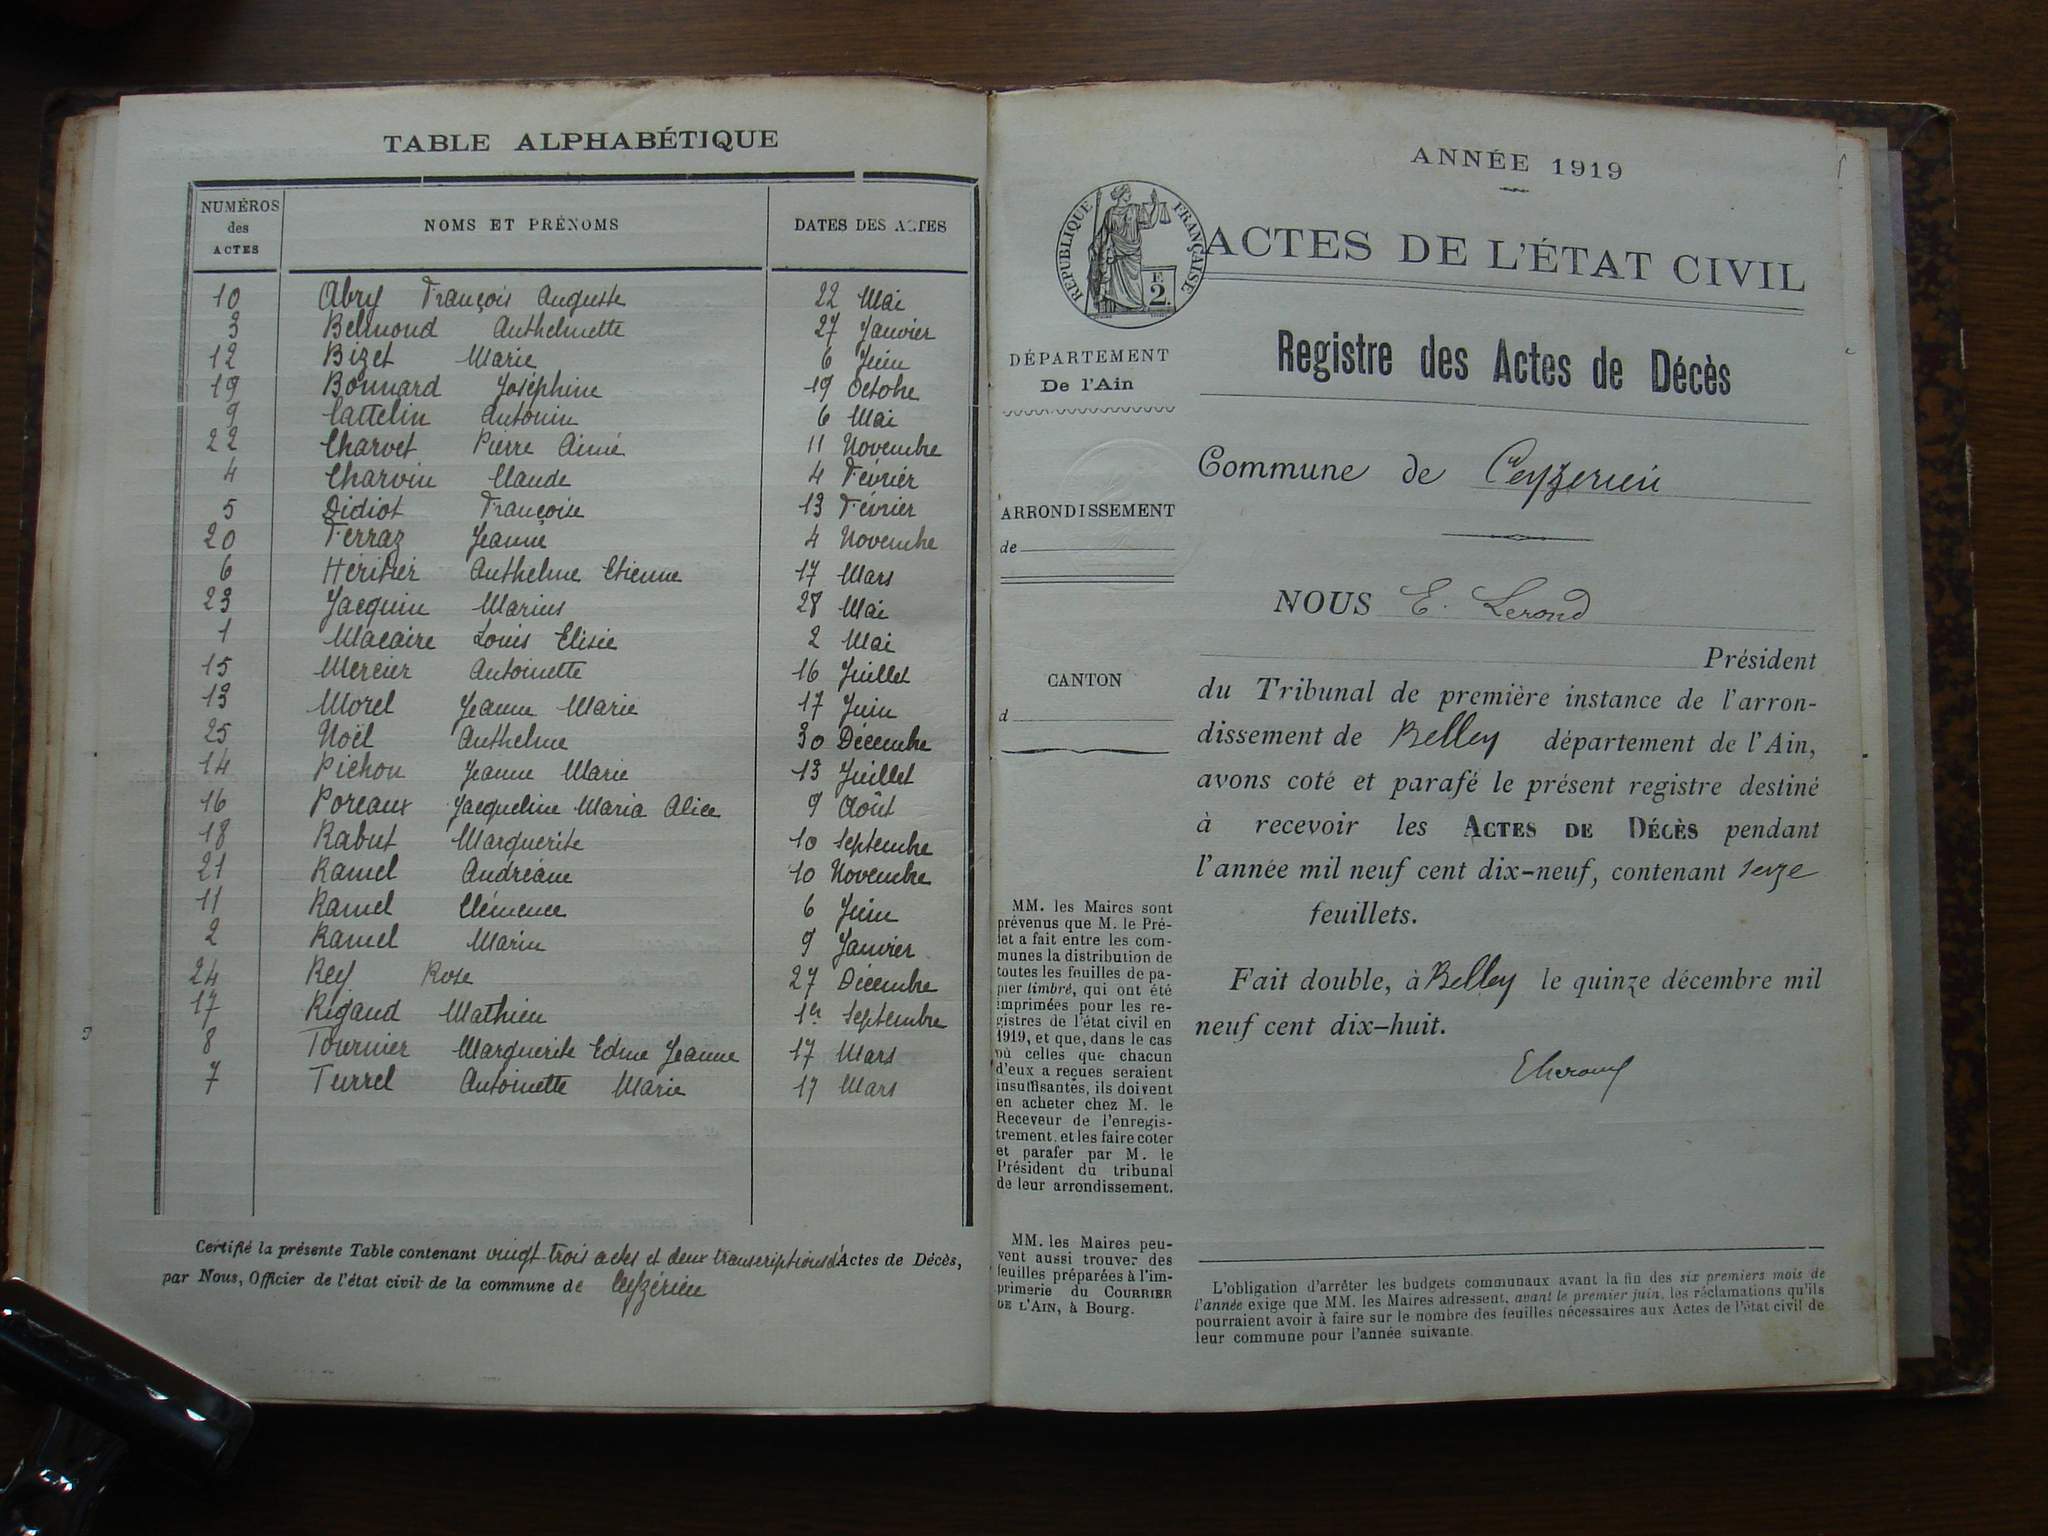 TABLE ALPHABÉTIQUE
NUMÉROS des ACTES
NOMS ET PRÉNOMS
DATES DES ACTES
10 Abry François Auguste 22 Mai
3 Belmond Anthelmette 27 Janvier
12 Bizet Marie 6 Juin
19 Bonnard Joséphine 19 Octobre
9 Cattelin Antonin 6 Mai
22 Charvet Pierre Aimé 11 Novembre
4 Charvin Claude 4 Février
5 Didiot Françoise 13 Février
20 Ferraz Jeanne 4 Novembre
6 Héritier Anthelme Etienne 17 Mars
23 Jacquin Marius 28 Mai
1 Macaire Louis Elisie 2 Mai
15 Mercier Antoinette 16 Juillet
13 Morel Jeanne Marie 17 Juin
25 Noël Anthelme 30 Décembre
14 Pichon Jeanne Marie 13 Juillet
16 Poreaux Jacqueline Maria Alice 9 Août
18 Rabut Marguerite 10 Septembre
21 Ramel Andréane 10 Novembre
11 Ramel Clémence 6 Juin
2 Ramel Marin 9 Janvier
24 Rey Rose 27 Décembre
17 Rigaud Mathieu 1er Septembre
8 Tournier Marguerite Edme Jeanne 17 Mars
7 Turrel Antoinette Marie 17 Mars
Certifié la présente Table contenant vingt trois actes et deux transcriptions d'Actes de Décès,
par Nous, Officier de l'état civil de la commune de Ceyzérieu
ANNÉE 1919
RÉPUBLIQUE FRANÇAISE
E
2.
ACTES DE L'ÉTAT CIVIL
DÉPARTEMENT
De l'Ain
ARRONDISSEMENT
de
CANTON
d
MM. les Maires sont
prévenus que M. le Pré-
fet a fait entre les com-
munes la distribution de
toutes les feuilles de pa-
pier timbré, qui ont été
imprimées pour les re-
gistres de l'état civil en
1919, et que, dans le cas
où celles que chacun
d'eux a reçues seraient
insuffisantes, ils doivent
en acheter chez M. le
Receveur de l'enregis-
trement, et les faire coter
et parafer par M. le
Président du tribunal
de leur arrondissement.
MM. les Maires peu-
vent aussi trouver des
feuilles préparées à l'im-
primerie du COURRIER
DE L'AIN, à Bourg.
Registre des Actes de Décès
Commune de Ceyzerieu
NOUS E. Lerond
Président
du Tribunal de première instance de l'arron-
dissement de Belley département de l'Ain,
avons coté et parafé le présent registre destiné
à recevoir les ACTES DE DÉCÈS pendant
l'année mil neuf cent dix-neuf, contenant seize
feuillets.
Fait double, à Belley le quinze décembre mil
neuf cent dix-huit.
L'obligation d'arrêter les budgets communaux avant la fin des six premiers mois de
l'année exige que MM. les Maires adressent, avant le premier juin, les réclamations qu'ils
pourraient avoir à faire sur le nombre des feuilles nécessaires aux Actes de l'état civil de
leur commune pour l'année suivante.